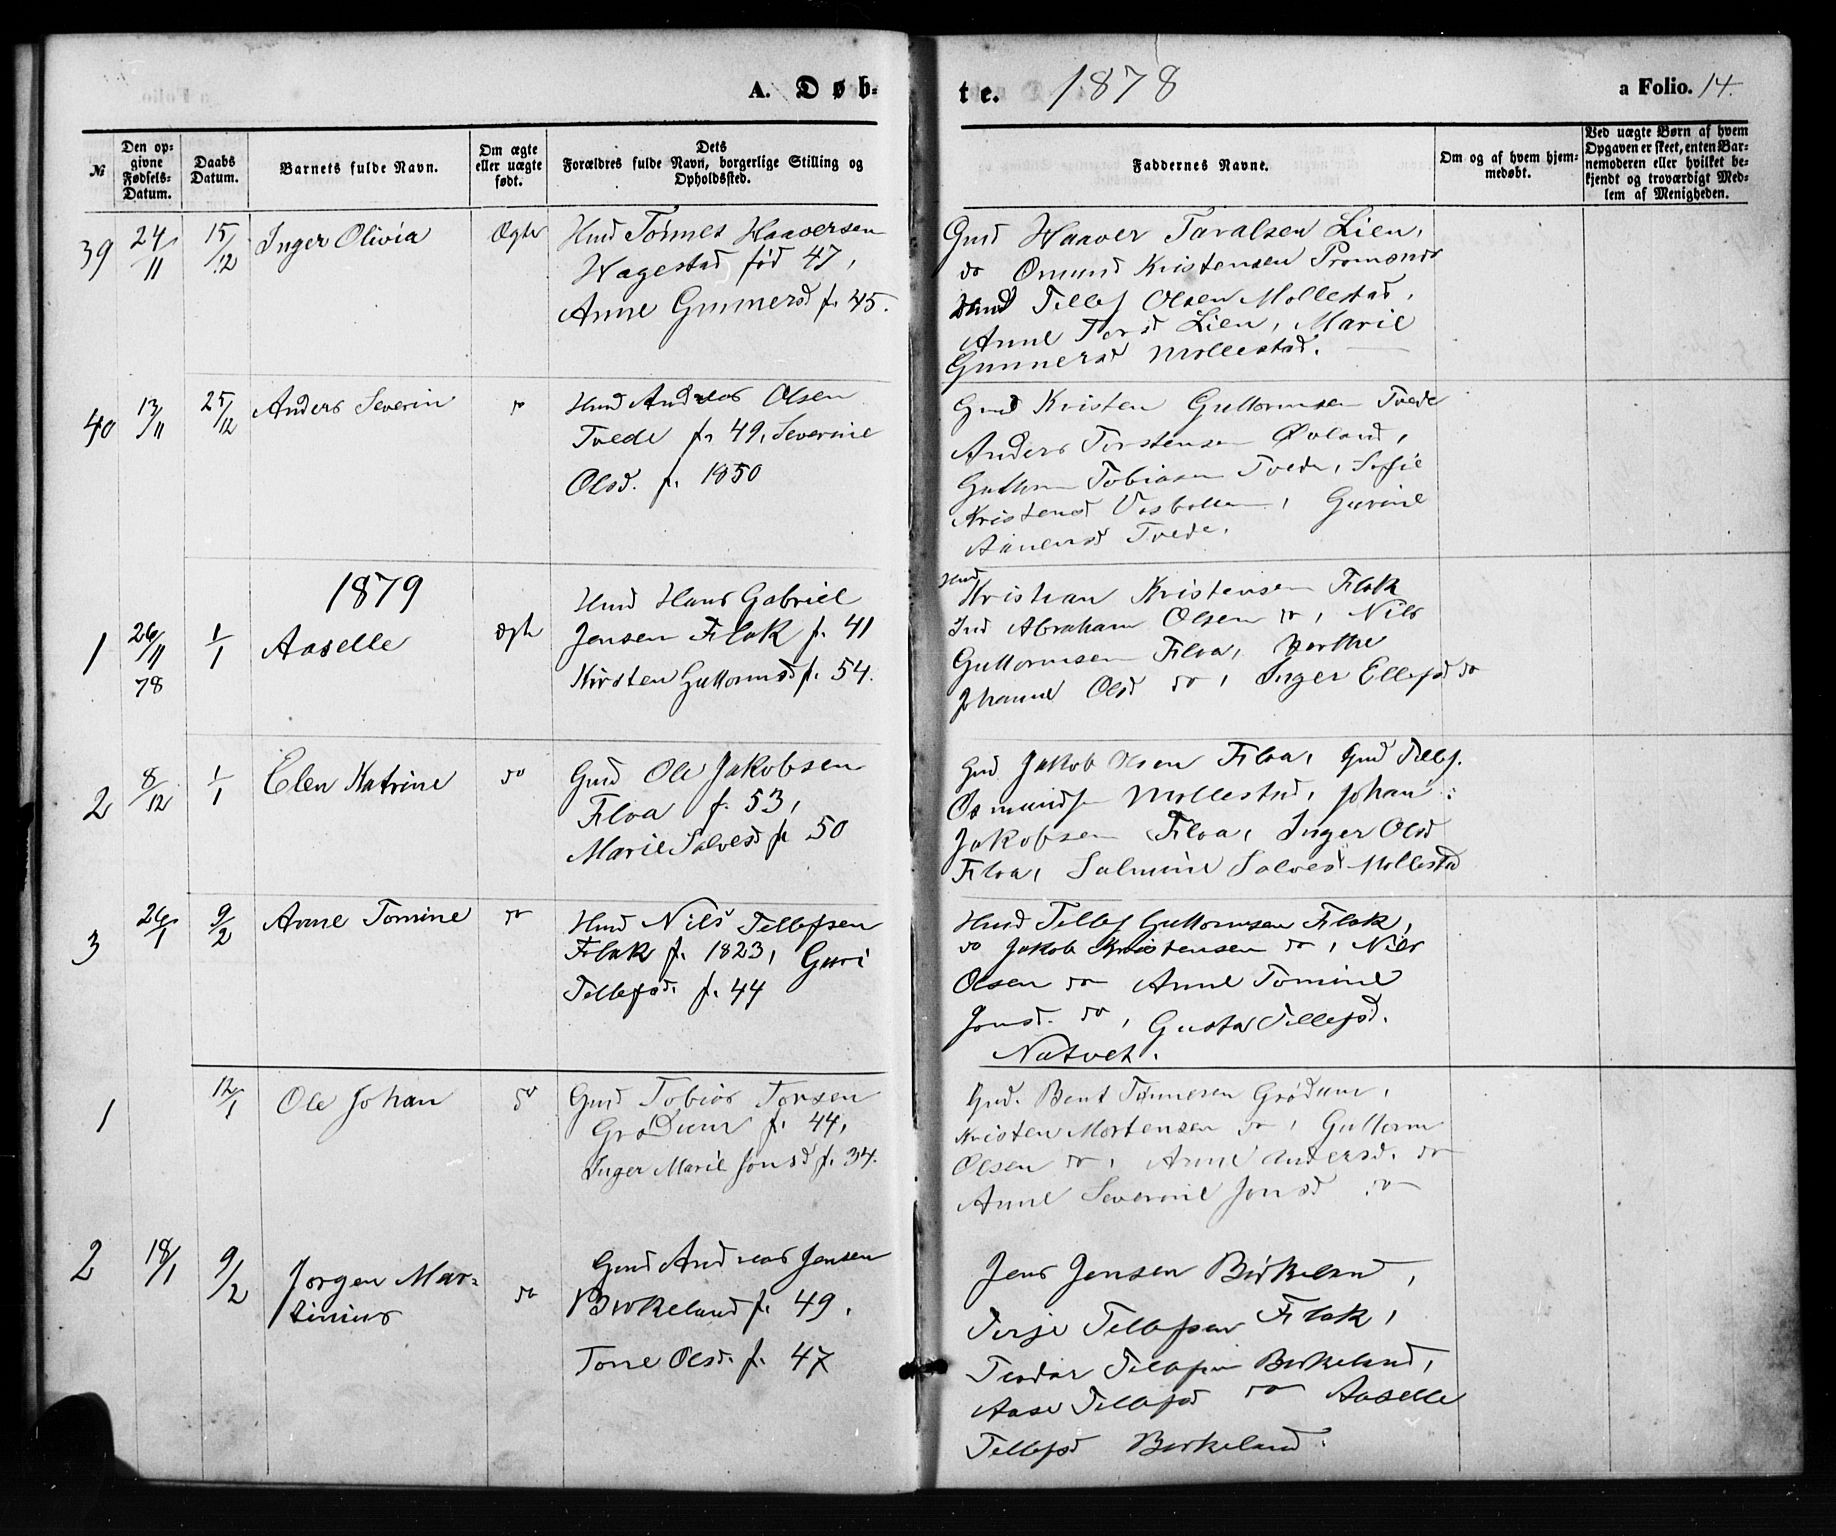 A. Døb-
te. 1878
a Folio. 14.
№
Den op-
givne
Fødsels-
Datum.
Daabs
Datum.
Barnets fulde Navn.
Om ægte
eller uægte
født.
Dets
Forældres fulde Navn, borgerlige Stilling og
Opholdssted.
Faddernes Navne.
Om og af hvem hjem-
medøbt.
Ved uægte Børn af hvem
Opgaven er skeet, enten Bar-
nemoderen eller hvilket be-
kjendt og troværdigt Med-
lem af Menigheden.
39 24/11 15/12 Inger Olivia Ægte
Hmd Tønnes Haaversen
Hagestad fød 47,
Anne Gunnersd f. 45.
Gmd Haaver Taralsen Lien,
do Omund Kristensen
Hmd Tellef Olsen Mollestad,
Anne Torsd Lien, Marie
Gunnersd Mollestad.
40 13/11 25/12 Anders Severin do
Hmd Andreas Olsen
Tvede f. 49, Severine
Olsd. f. 1850
Gmd Kristen Guttormsen Tvede
Anders Torstensen Øvland,
Guttorm Tobiasen Tvede, Sofie
Kristensd Gurine
Tvede.
1879
1 26/11 78 1/1 Aaselle ægte
Hmd Hans Gabriel
Jensen Flak f. 41
Kirsten Guttormsd f. 54.
Hmd
Kristian Kristensen Flak
Ind Abraham Olsen do, Nils
Guttormsen Floa, Berthe
Johanne Olsd do, Inger Ellefsd do
2 8/12 1/1 Elen Katrine do
Gmd Ole Jakobsen
Floa f. 53,
Marie Salvesd f 50
Gmd Jakob Olsen Floa, Gmd Tellef.
Osmunds. Mollestad, Johan
Jakobsen Floa, Inger Olsd
Floa, Salmine Salvesd Mollestad
3 26/1 9/2 Anne Tomine do
Hmd Nils Tellefsen
Flak f. 1823, Guri
Tellefsd. f. 44
Hmd Tellef Guttormsen Flak,
do Jakob Kristensen do, Nils
Olsen do Anne Tomine
Jonsd. do, Gusta Tellefsd.
Natvet.
1 12/1 Ole Johan do
Gmd Tobias Torsen
Grødum f. 44,
Inger Marie Jonsd f. 34.
Gmd. Bent Tønnesen Grødum,
Kristen Mortensen do, Guttorm
Olsen do, Anne Andersd. do
Anne Severine Jonsd do
2 18/1 9/2 Jørgen Mar-
tinius do
Gmd Andreas Jensen
Birkeland f. 49,
Tone Olsd. f. 47
Jens Jensen Birkeland,
Terje Tellefsen Flak,
Teodor Tellefsen Birkeland,
Aase Tellefsd do Aaselle
Tellefsd Birkeland.